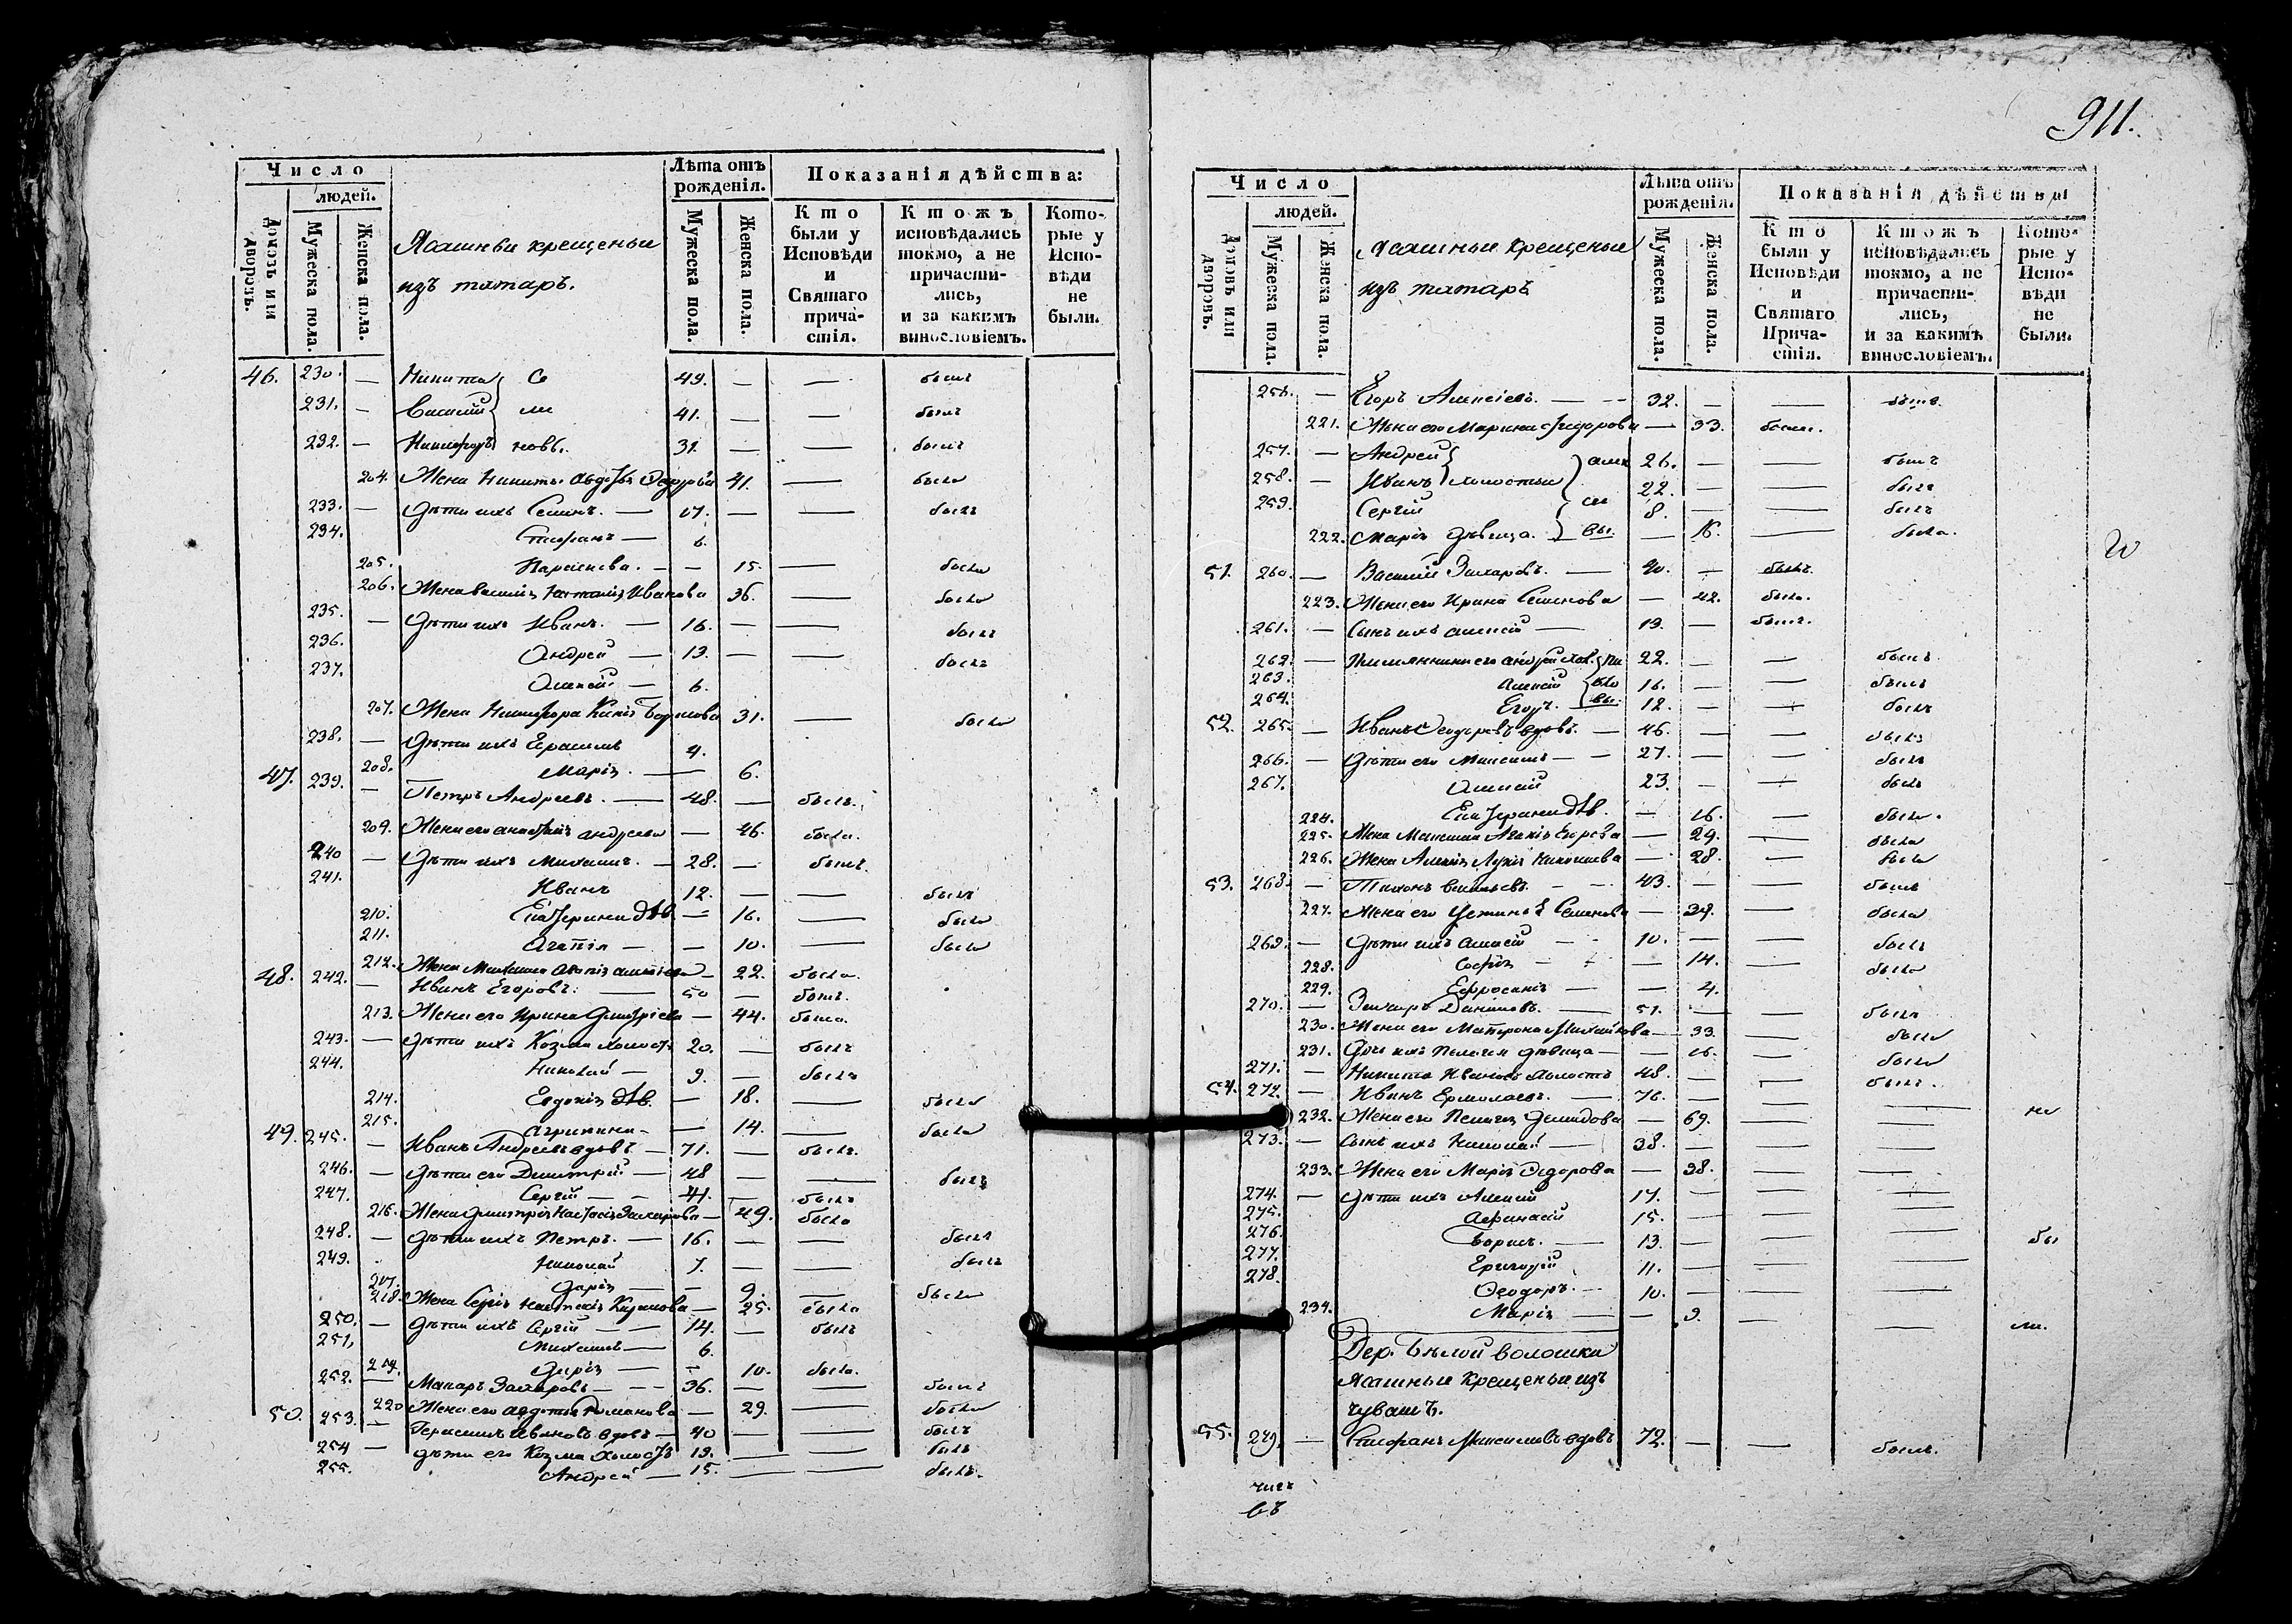 Число
людей.
Домовъ или дворовъ.
Мужеска пола.
Женска пола.
Ясашныи крещеныи
изъ татаръ.
Лѣта отъ
рожденія.
Мужеска пола.
Женска пола.
Показанія дѣйства:
Кто
были у
Исповѣди
и
Святаго
прича-
стія.
Ктожъ
исповѣдались
токмо, а не
причасти-
лись,
и за какимъ
винословіемъ.
Кото-
рые у
Испо-
вѣди
не
были.
46. 230. — Никита Се 49. — — былъ
231. — Василій ме 41. — — былъ
232. — Никифоръ новы. 31. — — былъ
204. Жена Никиты Авдотья 41. — была
233. — Дѣти ихъ Семенъ. — 17. — — былъ
234. Стефанъ — 6.
205. Параскева. — — 15. — была
206. Жена Василія Иванова 36. — была
235. — Дѣти ихъ Иванъ. — 16. — — былъ
236. Андрей — 13. — — былъ
237. Алексей. — 6.
207. Жена Никифора Борисова 31. — была
238. — Дѣти ихъ Герасимъ 4.
208. Марія. — 6.
47. 239. — Петръ Андреевъ. — 48. — былъ.
209. Жена его Андреева — 46. была.
240 — Дѣти ихъ Михаилъ. — 28. — былъ.
241. Иванъ 12. — — былъ
210. Екатерина дѣв. — 16. — была
211. Агапія — — 10. — была
212. Жена Михаила Агапія — 22. была.
48. 242. — Иванъ Егоровъ. — 50 — былъ.
213. Жена его Ирина Димитріева — 44. была.
243. — Дѣти ихъ Козма холостъ 20. — былъ
244. Николай — 9. — былъ
214. Евдокія дѣв. — 18. — была
215. Агрипина — — 14. — была
49. 245. — Иванъ Андреевъ вдовъ — 71. — былъ.
246. — Дѣти его Димитрій — 48 — — былъ
247. Сергій — — 41. — былъ
216. Жена Димитрія Настасія Захарова — 49. была
248. — Дѣти ихъ Петръ. — 16. — — былъ
249. Николай 7. — — былъ
217. Дарія — — 9. — была
218. Жена Сергія — 25. была
250. — Дѣти ихъ Сергій — — 14. — былъ
251. Михаилъ — 6.
219. Дарія — — 10. была.
252. — Макаръ Захаровъ — — — 36. — — былъ
220 Жена его Авдотья Романова — 29. — была
50. 253. — Герасимъ Ивановъ вдовъ — 40 — — былъ
254 — Дѣти его Козма холостъ 19. — — былъ
255. Андрей — 15. — — былъ.
911.
Число
людей.
Домовъ или дворовъ.
Мужеска пола.
Женска пола.
Ясашныи крещеныи
изъ татаръ
Лѣта отъ
рожденія.
Мужеска пола.
Женска пола.
Показанія дѣйства
Кто
были у
Исповѣди
и
Святаго
Прича-
стія.
Ктожъ
исповѣдались
токмо, а не
причасти-
лись,
и за какимъ
винословіемъ.
Кото-
рые у
Испо-
вѣди
не
были.
256. — Егоръ Алексіевъ. — — — 32. — — былъ.
221. Жена его Марина Федорова — 33. была.
257. — Андрей алек 26. — — былъ
258. — Иванъ холостыи 22. — — былъ
259. Сергій се 8. — — былъ
222. Марія Дѣвица. вы. — 16. — была.
51. 260. — Василій Захаровъ. — 40. — былъ.
223. Жена его Ирина Семенова — 42. была.
261. — Сынъ ихъ Алексей — 19. — былъ.
262. — Племянники его Андрей 22. — — былъ.
263. Алексей 16. — — былъ
264. Егоръ. вы. 12. — — былъ
52. 265. — Иванъ Феодоровъ вдовъ. — 46. — — былъ
266. — Дѣти его Максимъ — — 27. — — былъ
267. Алексей 23. — — былъ
224. Екатерина дѣв. — 16. — была.
225. Жена Максима Агапія Егорова — 29. — была
226. Жена Алексія — 28. — была
53. 268. — Тихонъ Васильевъ. — — 43. — — былъ
227. Жена его Устинья Семенова — 34. — была
269. — Дѣти ихъ Алексей — — 10. — — былъ
228. Софія — — 14. — была
229. Ефросинія — — 4.
270. — Захаръ Даниловъ. — 51. — — былъ
230. Жена его Матрона Михайлова — 33. — была
231. Дочь ихъ Пелагея дѣвица — — 16. — была
271. — Никита Ивановъ холостъ 48. — — былъ.
54. 272. — Иванъ Ермолаевъ. — 76. — — —
232. Жена его Пелагея Демидова — 69. — — не
273. — Сынъ ихъ Николай — 38. — — —
233. Жена его Марія Федорова — 38. — —
274. — Дѣти ихъ Алексей 17. — — —
275. Афанасій 15. — — —
276. Борисъ. — 13. — — — бы
277. Григорій 11. — — —
278. Феодоръ. — 10. — — —
234. Марія — — 9. — — ли.
Дер. Бѣлой воложки
Ясашныи крещеныи изъ
чувашъ.
55. 279. — Стефанъ Максимовъ вдовъ 72. — — былъ.